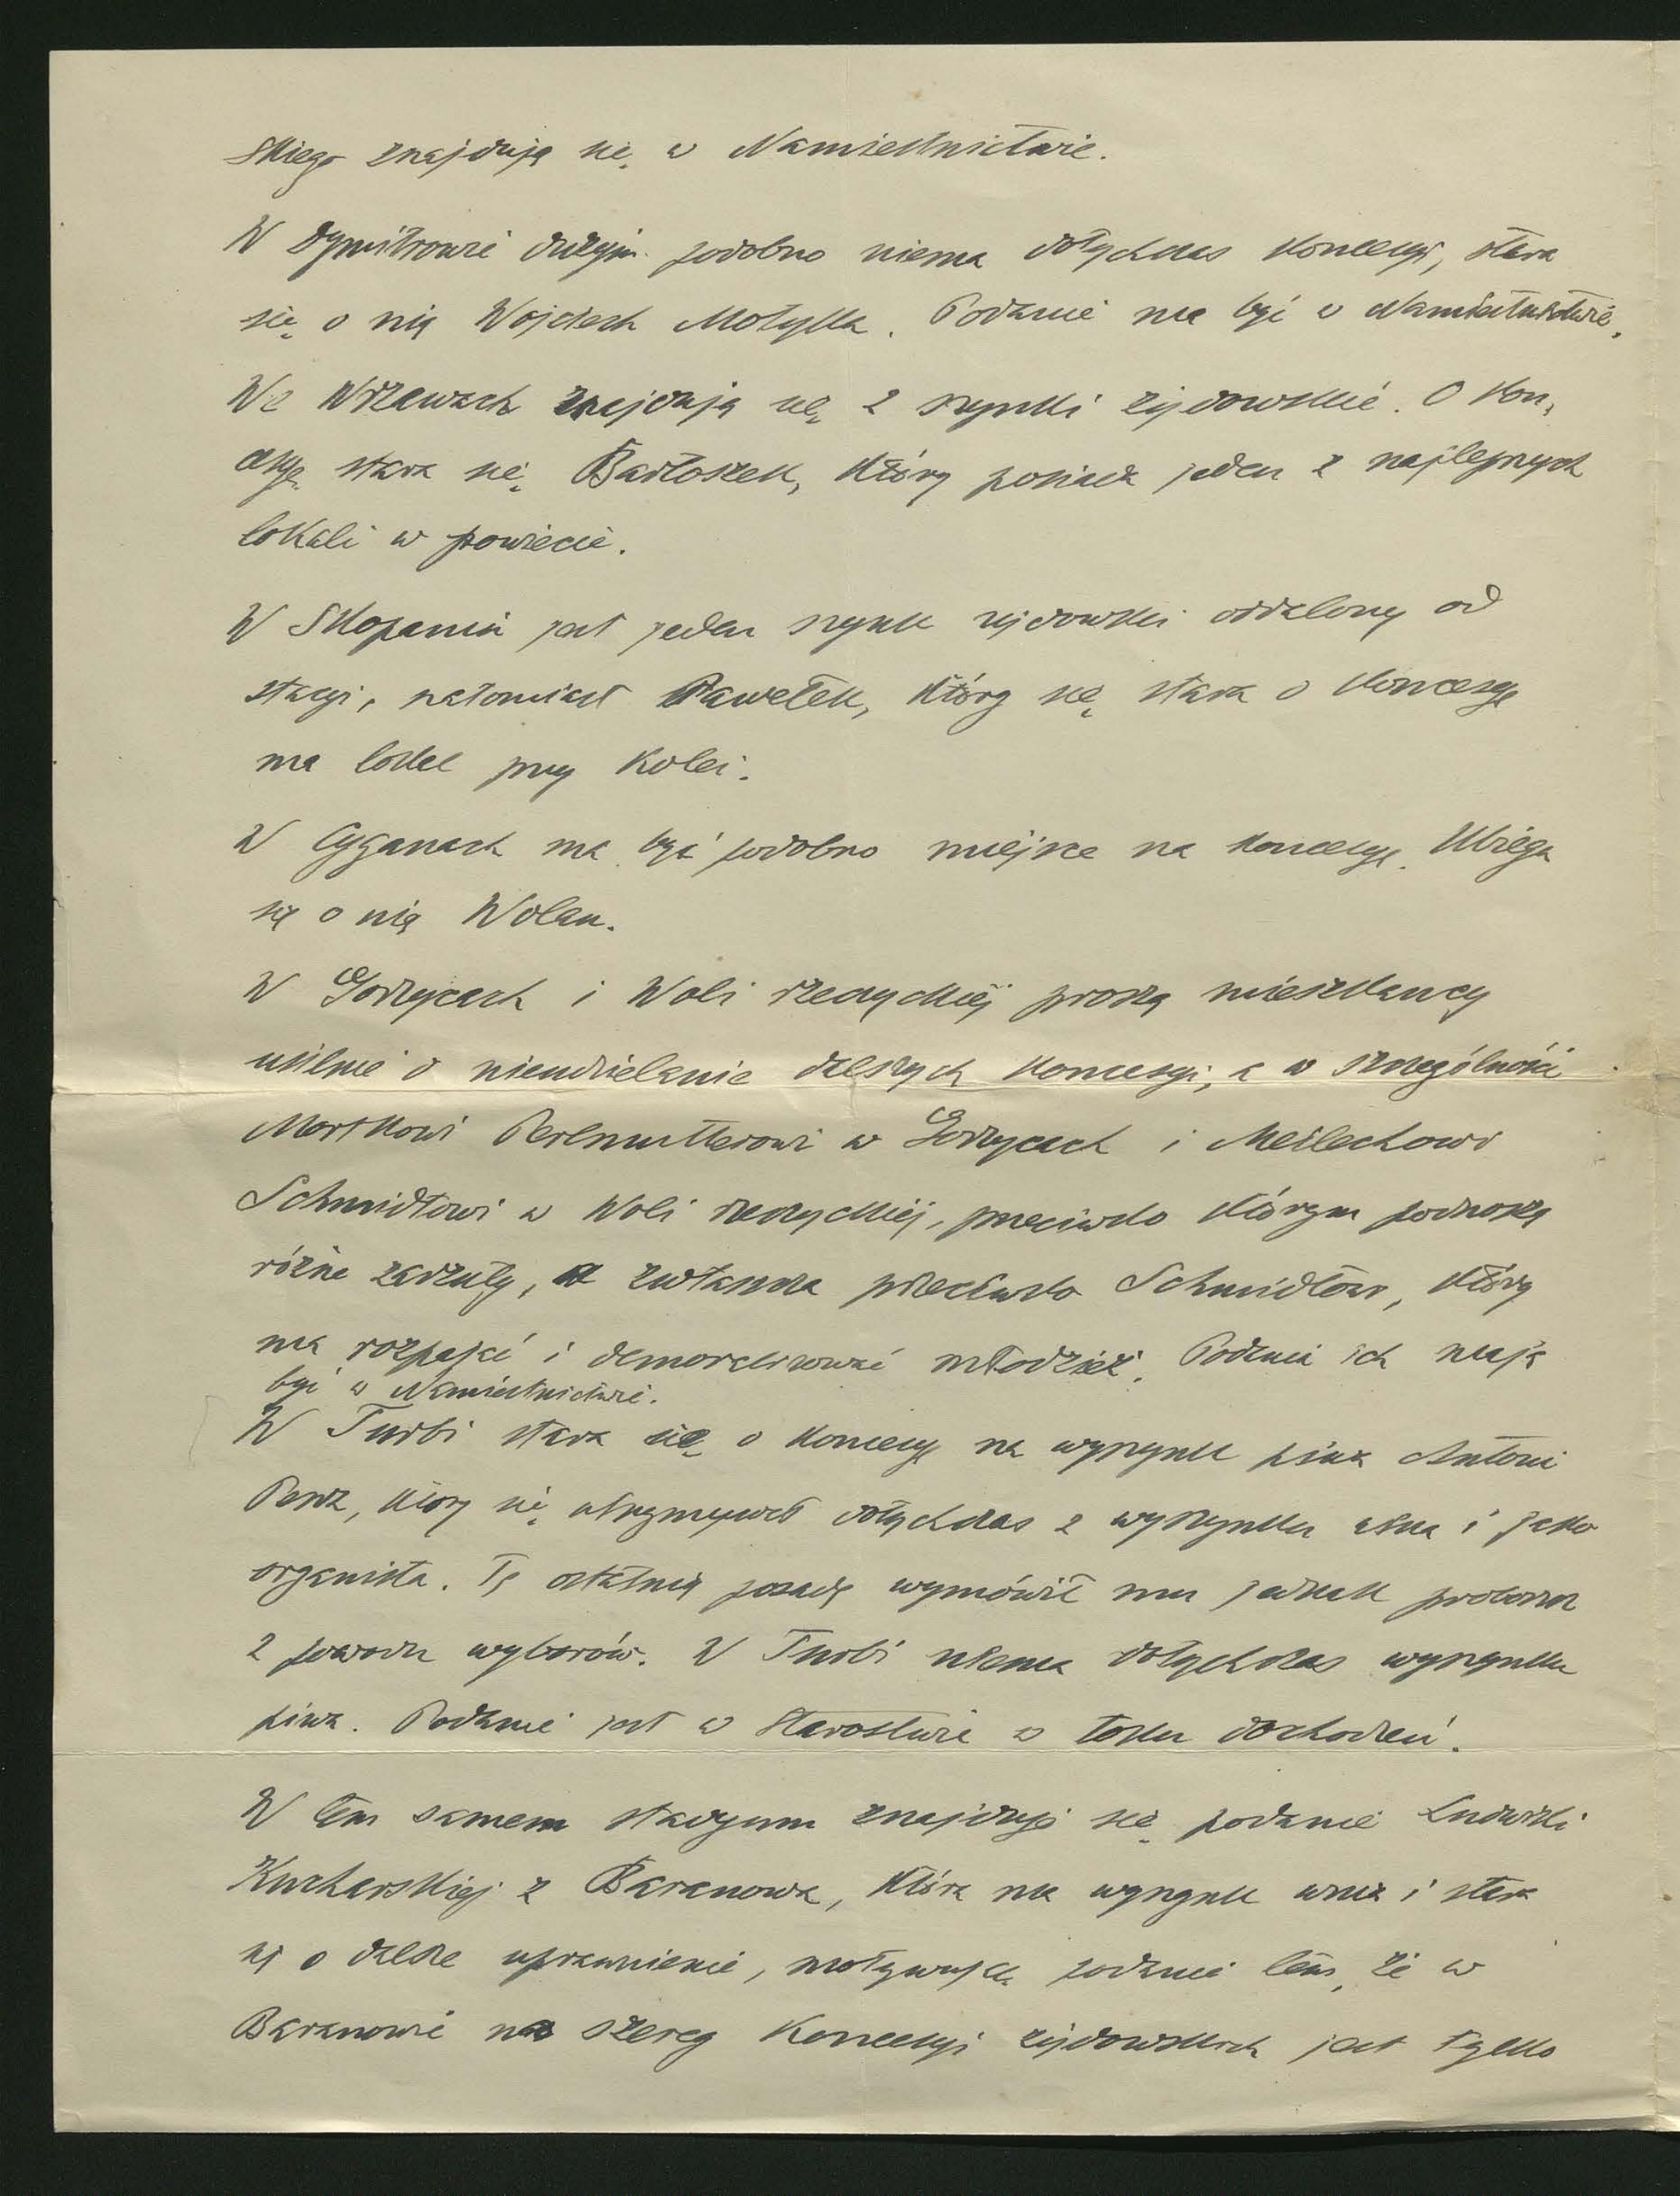 skiego znajdują się w Namiestnictwie.
W Dymitrowie dużym podobno niema dotychczas koncesyi, stara
się o nią Wojciech Motyka. Podanie ma być w Namiestnictwie.
We Wrzawach znajdują się 2 szynki żydowskie. O kon,
cesyę stara się Bartoszek, który posiada jeden z najlepszych
lokali w powiecie.
W Skopaniu jest jeden szynk żydowski oddalony od
stacyi, natomiast Pawełek, który się stara o koncesyę
ma lokal przy kolei.
W Cyganach ma być podobno miejsce na koncesyę. Ubiega
się o nią Wolan.
W Gorzycach i Woli rzeczyckiej proszą mieszkańcy
usilnie o nieudzielanie dalszych koncesyi, a w szczególności
Morskowi Perlmutterowi w Gorzycach i Meilechowi
Schmidtowi w Woli rzeczyckiej, przeciwko którym podnoszą
różne zarzuty, a zwłaszcza przeciwko Schmidtowi, który
ma rozpajać i demoralizować młodzież. Podania ich mają
być w Namiestnictwie.
W Turbi stara się o koncesyę na wyszynk piwa Antoni
który się utrzymywał dotychczas z wyszynku wina i jako
organista. Tę ostatnią posadę wymówił mu jednak proboszcz
z powodu wyborów. W Turbi niema dotychczas wyszynku
piwa. Podanie jest w Starostwie w toku dochodzeń.
W tem samem stadyum znajduje się podanie Ludwiki
Kucharskiej z Baranowa, która ma wyszynk wina i stara
się o dalsze uprawnienie, motywując podanie tem, że w
Baranowie na szereg koncesyi żydowskich jest tylko